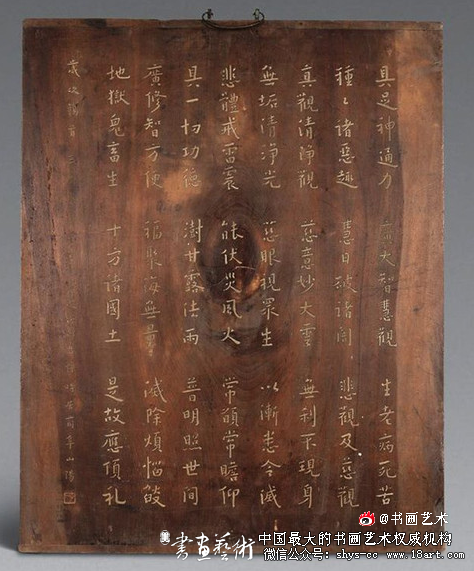 具足神通力 廣大智慧觀 生老病死苦
種〻諸惡趣 慧日破諸闇 悲觀及慈觀
真觀清淨觀 慈意妙大雲 無利不現身
無垢清淨光 慈眼視眾生 以漸悉令滅
悲體戒雷震 能伏災風火 常願常瞻仰
具一切功德 澍甘露法雨 普明照世間
廣修智方便 福聚海無量 滅除煩惱燄
地獄鬼畜生 十方諸國土 是故應頂礼
歲次
@书画艺术
書畫藝術
中国最大的书画艺术权威机构
微信公众号：shys-cc www.18art.com